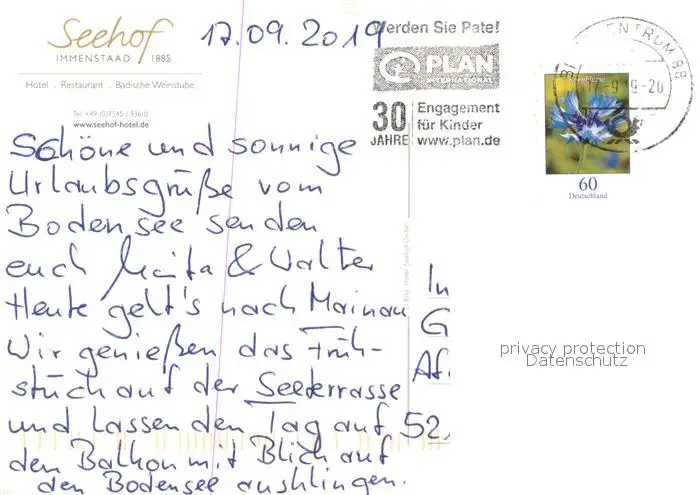 Seehof
IMMENSTAAD 1885
Hotel . Restaurant . Badische Weinstube
Tel. +49 (0)7545 / 936-0
www.seehof-hotel.de
17.09.2019
Werden Sie Pate!
PLAN
INTERNATIONAL
30 JAHRE
Engagement
für Kinder
www.plan.de
ENTRUM 88
17-9 9-20
60
Deutschland
Schöne und sonnige
Urlaubsgrüße vom
Bodensee senden
euch & Walter
Heute geht's nach Mainau
Wir genießen das Früh-
stück auf der Seeterrasse
und lassen den Tag auf
den Balkon mit Blick auf
den Bodensee ausklingen.
In
G
Af.
52
privacy protection
Datenschutz